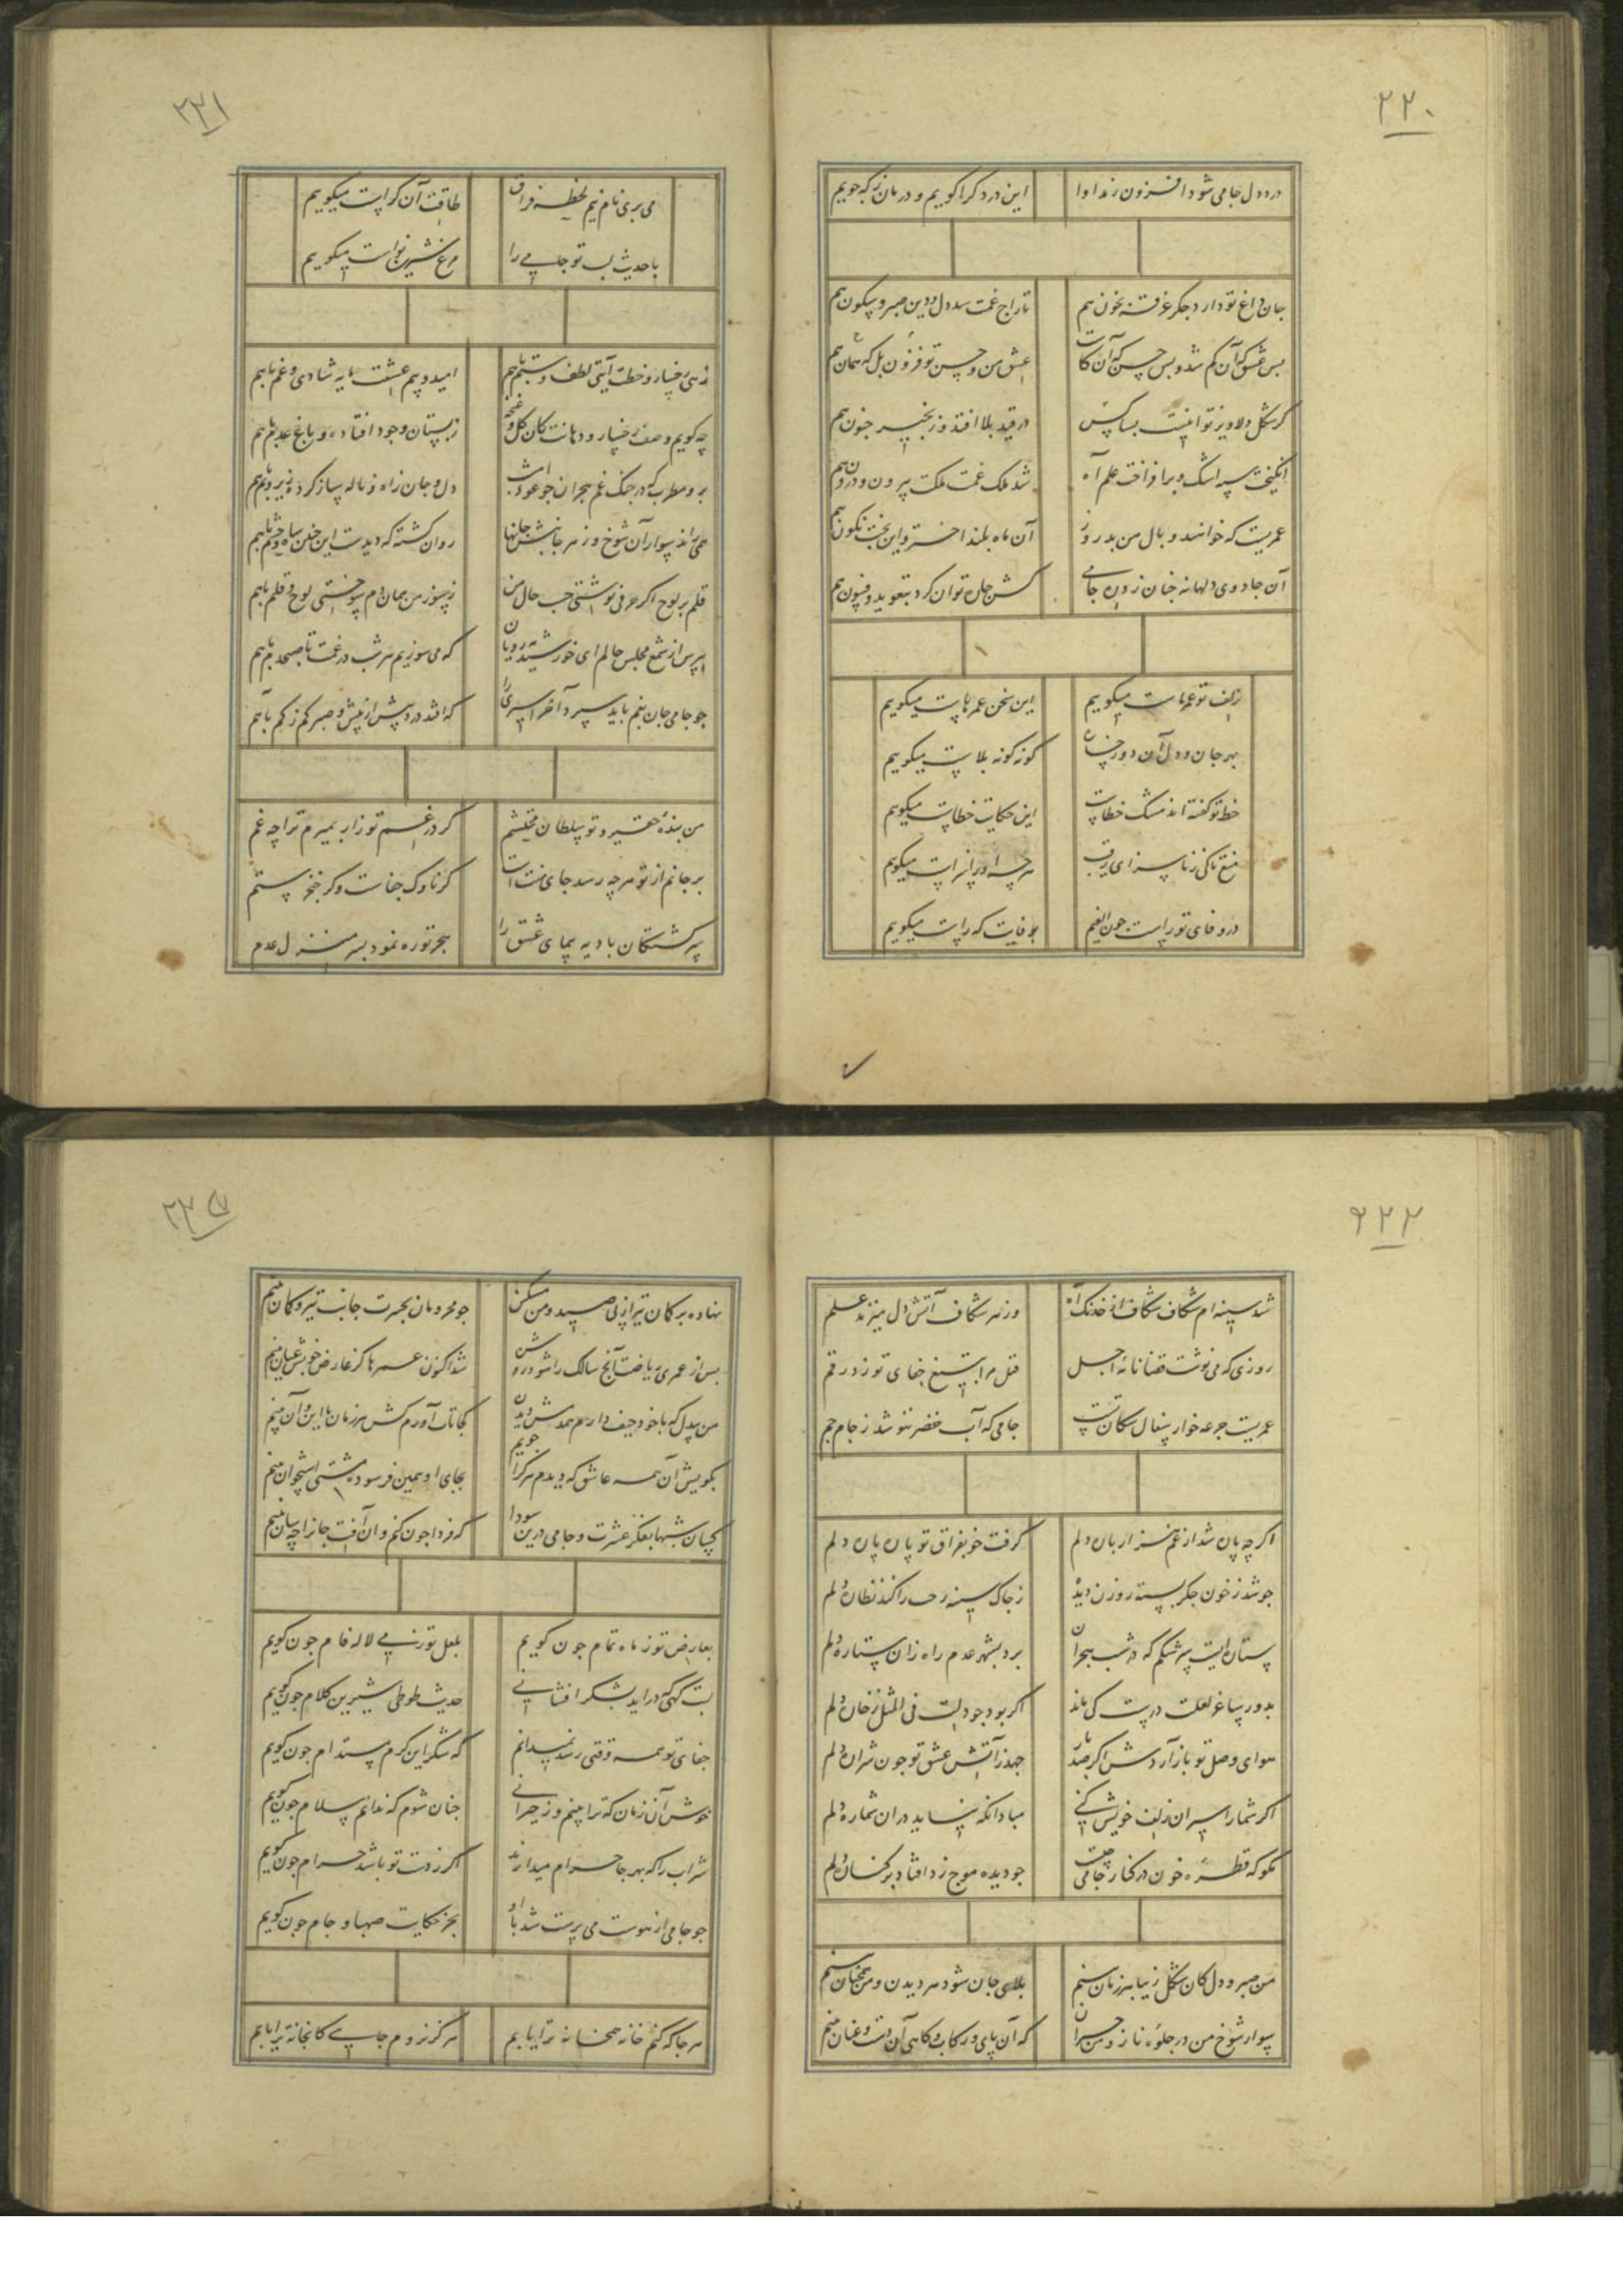 ۲۲۰
درد دل جامی شود افزون زنداوا
این درد کرا کویم و درمان ز که جویم
جان داغ تو دارد جکر غرقه بخون هم
تاراج غمت شد دل و دین صبر و سکون هم
بس عشق که آن کم شد و بس حسن که آن کاست
عشق من و حسن تو فزون بل که همان هم
کر شکل دلاویز تو اینست بسا کس
در قید بلا افتد و زنجیر جنون هم
انکیخت سپه اشک و برافراخت علم آه
شد ملک غمت ملکت بیرون و درون هم
عمریست که خوانند وبال من بدروز
آن ماه بلند اختر و این بخت نکون هم
آن جادوی دلها نه جنان زد ره جامی
کش جاره توان کرد بتعوید و فسون هم
زلف تو عمر ماست میکویم
این سخن عمرهاست میکویم
بهر جان و دل آن دو رخسارت
کونه کونه بلاست میکویم
خط تو کفته اند مشک خطاست
این حکایت خطاست میکویم
منع تا کی ز ناسزای رقیب
هرچه او را سزاست میکویم
در وفای تو راست جون الفم
بوفایت که راست میکویم
۲۲۱
می بری نام نیم لحظه فراق
طاقت آن کراست میکویم
با حدیث لب تو جامی را
مرغ شیرین نواست میکویم
زهی رخسار و خطت آیتی لطف و ستم با هم
امید و بیم عشقت مایه شادی و غم با هم
چه کویم وصف رخسار و دهانت کان کل و غنچه
ز بستان وجود افتاده و باغ عدم با هم
برو مطرب که در جنک غم هجران جو عود امشب
دل و جان زاه و ناله ساز کرده زیر و بم با هم
همی راند سوار آن شوخ و ز هر جانبش جانها
روان کشته که دیدست این جنین شاه و حشم با هم
قلم بر لوح اکر حرفی نوشتی حسب حال من
ز سوز من همان دم سوختی لوح و قلم با هم
بپرس از شمع مجلس حالم ای خورشید رویان
که می سوزیم هر شب در غمت تا صبحدم با هم
جو جامی جان بغم باید سپرد آخر اسیری را
که افتد درد بیش از بیش و صبر کم ز کم با هم
من بنده حقیر و تو سلطان محتشم
کر در غم تو زار بمیرم ترا چه غم
بر جانم از تو هرچه رسد جای منت است
کر ناوک جفاست و کر خنجر ستم
سرکشتکان بادیه پیمای عشق را
هجر تو ره نمود بسرمنزل عدم
۲۲۲
شد سینه ام شکاف شکاف از خدنک آه
وز هر شکاف آتش دل میزند علم
روزی که می نوشت قضا نامه اجل
قتل مرا بتیغ جفای تو زد رقم
عمریست جرعه خوار سفال سکان تست
جامی که آب خضر ننوشد ز جام جم
اکر چه پاره شد از غم هزار باره دلم
کرفت خو بفراق تو پاره پاره دلم
جو شد ز خون جکر بسته روزن دیده
ز جاک سینه رخت را کند نظاره دلم
ستاره ایست سرشکم که در شب هجران
برد بشهر عدم راه زان ستاره دلم
بدور ساغر لعلت درست کی ماند
اکر بود جو دلت فی المثل ز خاره دلم
هوای وصل تو باز آردش اکر صد بار
جهد ز آتش عشق تو جون شراره دلم
اکر شمار اسیران زلف خویش کنی
مباد آنکه نیاید دران شماره دلم
مکو که قطره خون در کنار جامی جیست
جو دیده موج زد افتاد بر کناره دلم
من صبر و دل کان شکل زیبا هر زمان بینم
بلای جان شود هر دیدن و من همچنان بینم
سوار شوخ من در جلوه ناز و من حیران
که آن پای و رکاب و کاهی آن دست و عنان بینم
۲۲۳
نهاده بر کمان تیر از پی صید و من مسکین
جو محرومان بحسرت جانب تیر و کمان بینم
بس از عمری ریاضت آنچ سالک را شود روشن
شد اکنون عمرها کز عارض خوبش عیان بینم
من بیدل که با خود حیف دارم همدمش دیدن
کجا تاب آورم کش هر زمان با این و آن بینم
بکویش آن همه عاشق که دیدم هر کرا جویم
بجای او همین فرسوده مشتی استخوان بینم
کجسان شبها بفکر عشرت و جامی درین سودا
که فردا جون کنم وان آفت جانرا چه سان بینم
بعارض تو ز ماه تمام جون کویم
بلعل تو ز می لاله فام جون کویم
لبت کهی که دراید بشکر افشانی
حدیث طوطی شیرین کلام جون کویم
جفای تو همه وقتی رسد نمیدانم
که شکر این کرم مستدام جون کویم
خوش آن زمان که ترا بینم و ز حیرانی
جنان شوم که ندانم سلام جون کویم
شراب را که بهر جا حرام میدارند
اکر ز دست تو باشد حرام جون کویم
جو جامی از هوست می پرست شد با او
بجز حکایت صهبا و جام جون کویم
هر جا که کنم خانه همخانه ترا یابم
هرکز نروم جایی کانجا نه ترا یابم